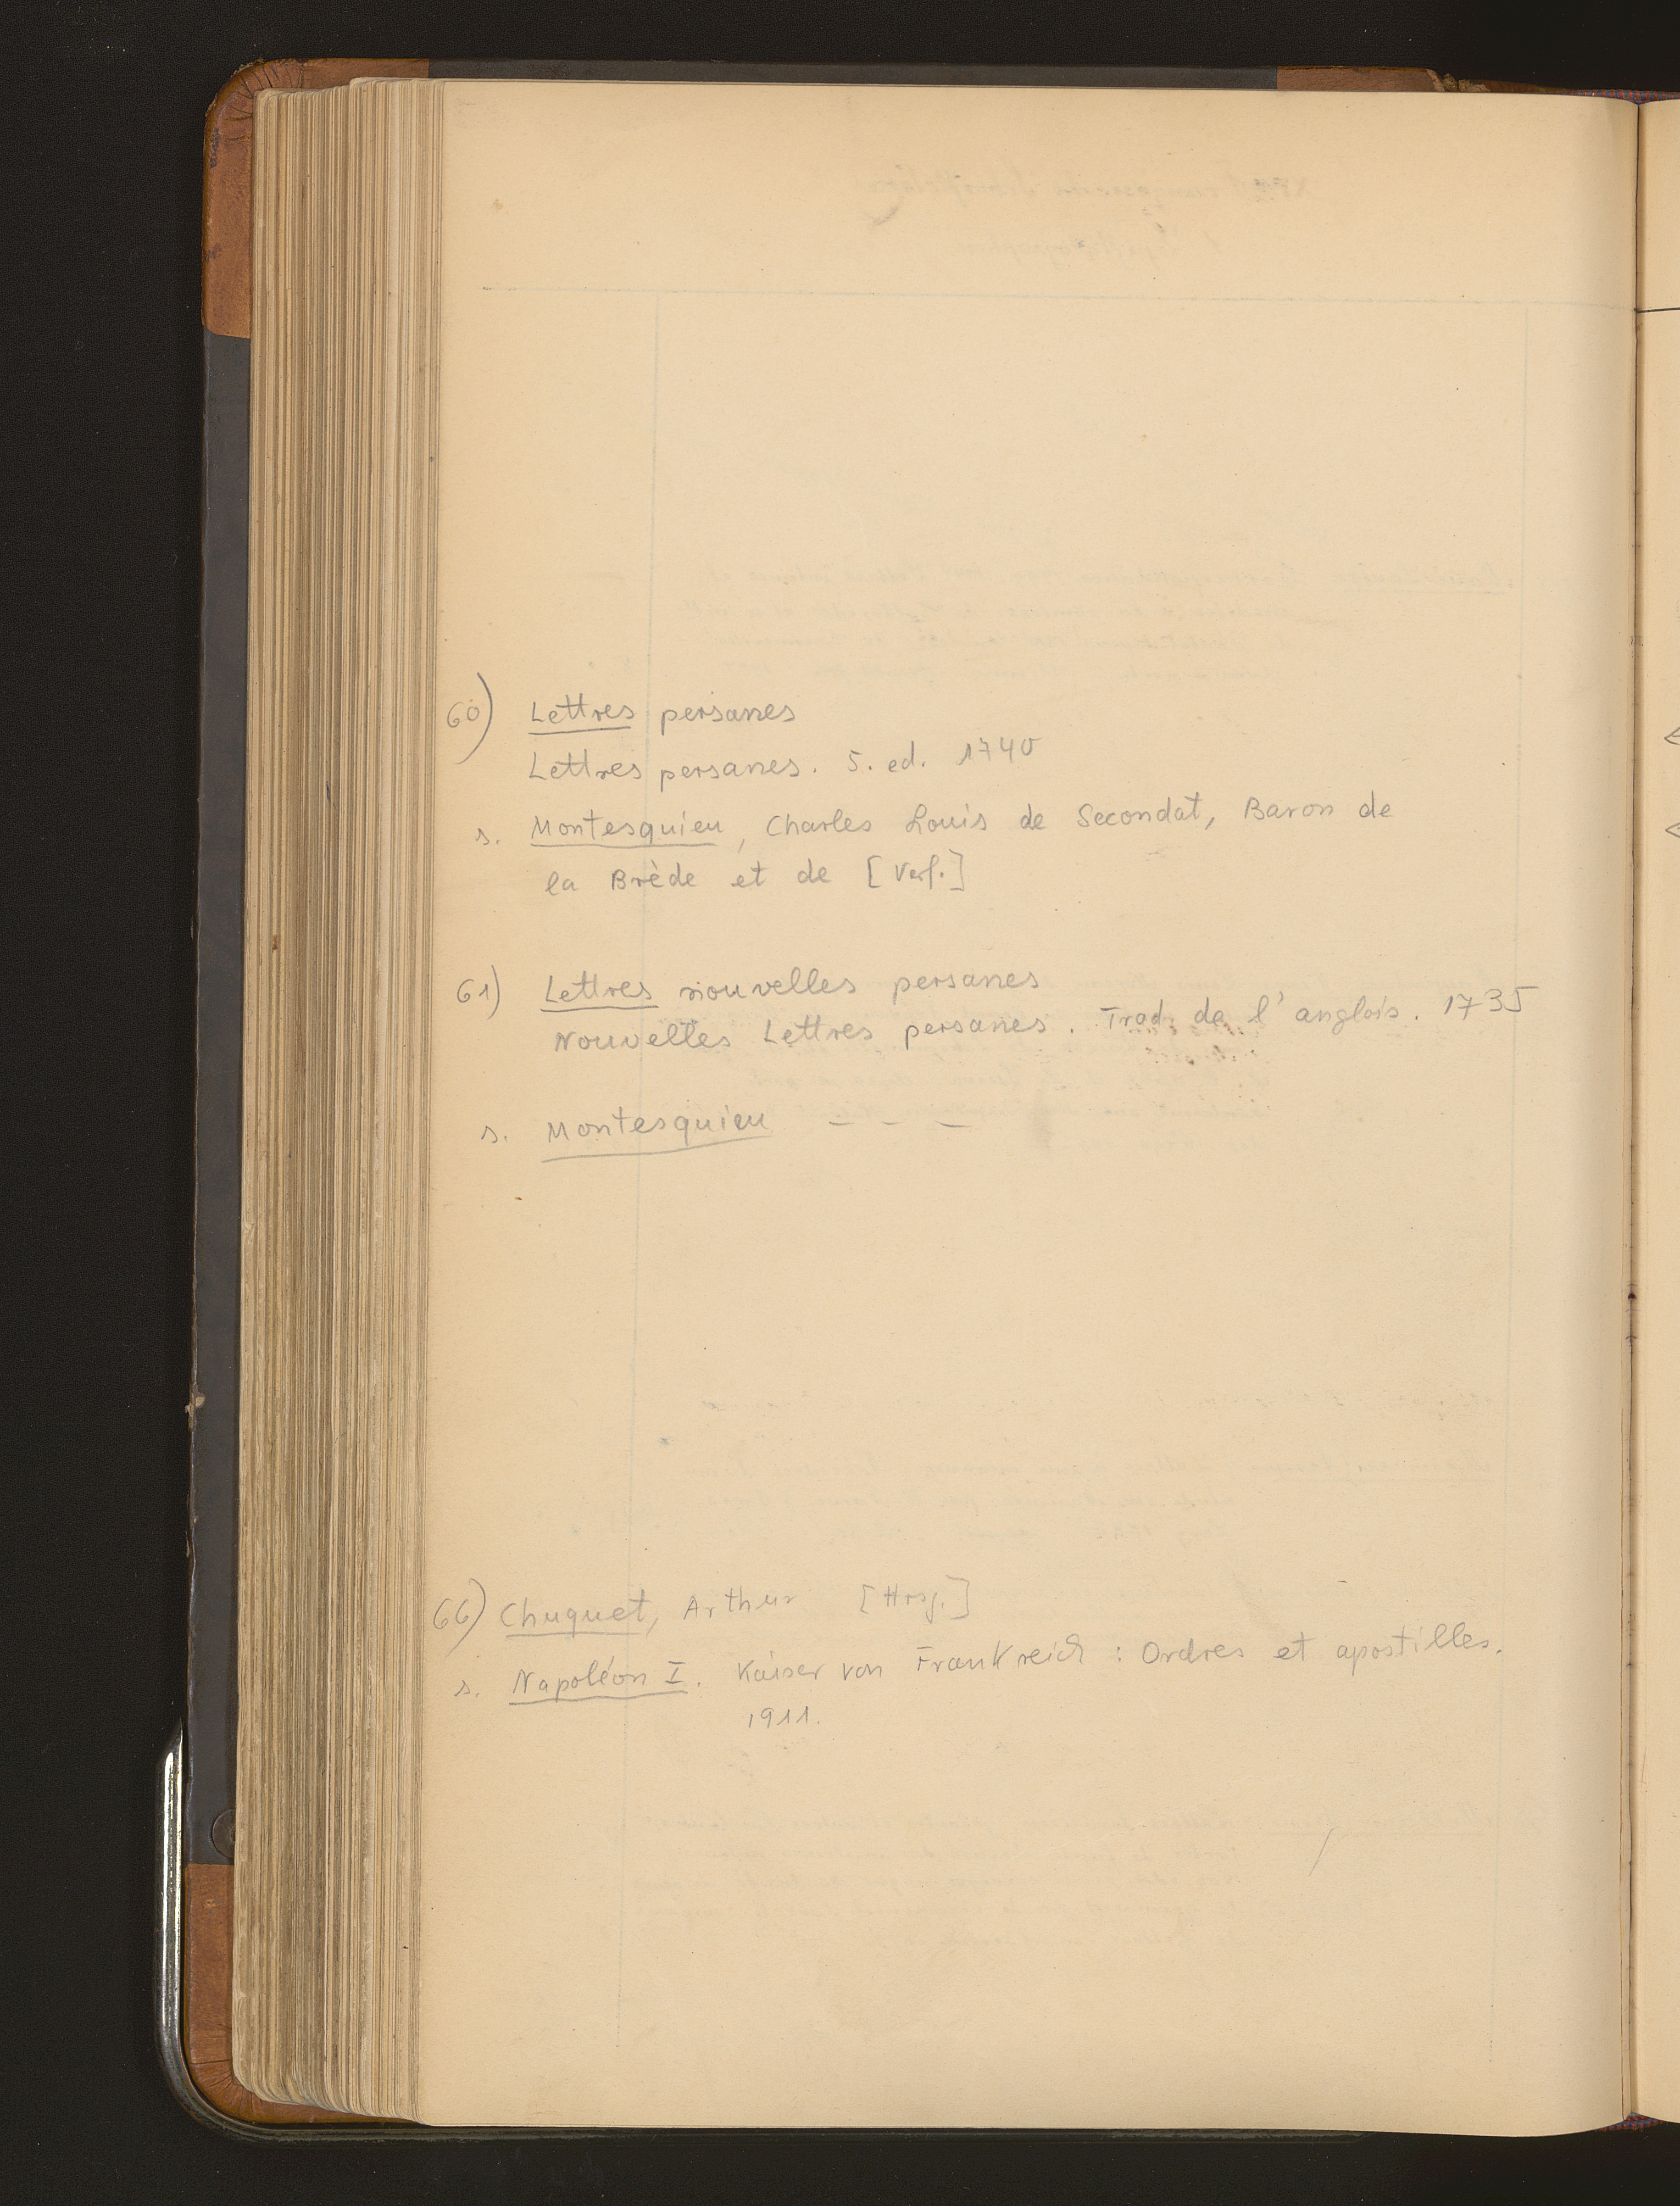 60) Lettres persanes
Lettres persanes. 5. ed. 1740
s. Montesquieu, Charles Louis de Secondat, Baron de
la Brède et de [Verf.]
61) Lettres nouvelles persanes
Nouvelles Lettres persanes. Trad. de l'anglois. 1735
s. Montesquieu — — —
66) Chuquet, Arthur [Hrsg.]
s. Napoléon I. Kaiser von Frankreich : Ordres et apostilles.
1911.